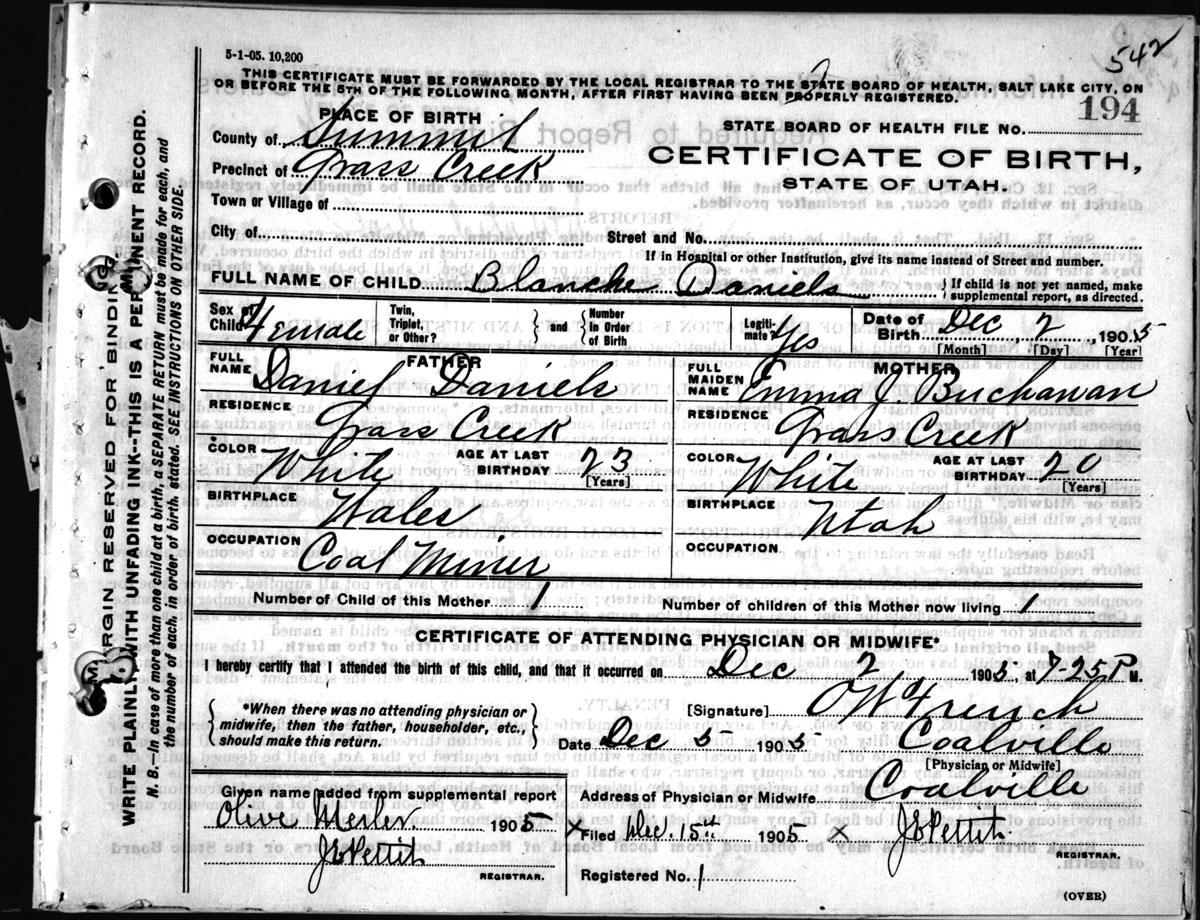 5-1-05. 10,200
542
THIS CERTIFICATE MUST BE FORWARDED BY THE LOCAL REGISTRAR TO THE STATE BOARD OF HEALTH, SALT LAKE CITY, ON
OR BEFORE THE 5TH OF THE FOLLOWING MONTH, AFTER FIRST HAVING BEEN PROPERLY REGISTERED.
PLACE OF BIRTH
STATE BOARD OF HEALTH FILE NO. 194
County of Summit
CERTIFICATE OF BIRTH,
Precinct of Grass Creek
STATE OF UTAH.
Town or Village of
City of
Street and No.
If in Hospital or other Institution, give its name instead of Street and number.
FULL NAME OF CHILD Blanche Daniels
If child is not yet named, make
supplemental report, as directed.
Sex of Child Female
Twin, Triplet, or Other?
and
Number in Order of Birth
Legitimate? Yes
Date of Birth Dec 2 1905
[Month] [Day] [Year]
FATHER
FULL NAME Daniel Daniels
RESIDENCE
Grass Creek
COLOR White AGE AT LAST BIRTHDAY 23
[Years]
BIRTHPLACE
Wales
OCCUPATION
Coal Miner
MOTHER
FULL MAIDEN NAME Emma J. Buchanan
RESIDENCE
Grass Creek
COLOR White AGE AT LAST BIRTHDAY 20
[Years]
BIRTHPLACE
Utah
OCCUPATION
Number of Child of this Mother 1 Number of children of this Mother now living 1
CERTIFICATE OF ATTENDING PHYSICIAN OR MIDWIFE*
I hereby certify that I attended the birth of this child, and that it occurred on Dec 2 1905, at 7-25 P M.
*When there was no attending physician or
midwife, then the father, householder, etc.,
should make this return.
[Signature] O W French
Date Dec 5 1905 Coalville
[Physician or Midwife]
Address of Physician or Midwife Coalville
Given name added from supplemental report
1905
J E Pettit
REGISTRAR.
x Filed Dec. 15th 1905 x J E Pettit.
REGISTRAR.
Registered No. 1
(OVER)
MARGIN RESERVED FOR BINDING
WRITE PLAINLY WITH UNFADING INK--THIS IS A PERMANENT RECORD.
N. B.—In case of more than one child at a birth, a SEPARATE RETURN must be made for each, and
the number of each, in order of birth, stated. SEE INSTRUCTIONS ON OTHER SIDE.